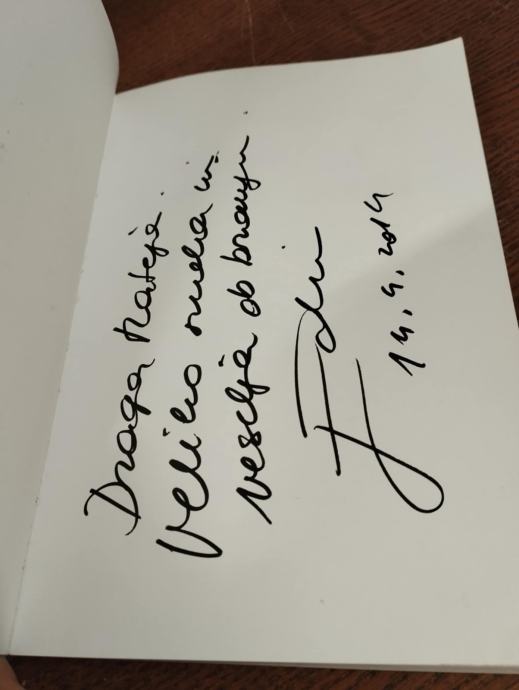 Draga Mateja.
Veliko smeha in
veselja ob branju.
14.4.2014